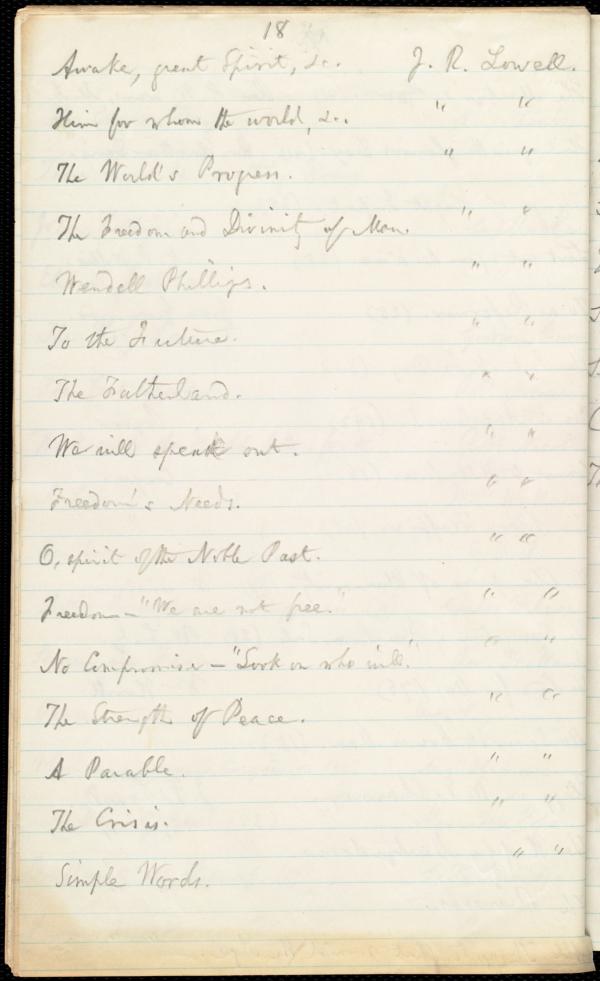 18
Awake, great Spirit, &c. J. R. Lowell.
Him for whom the world, &c. " "
The World's Progress. " "
The Freedom and Divinity of Man. " "
Wendell Phillips. " "
To the Future. " "
The Fatherland. " "
We will speak out. " "
Freedom's Needs. " "
O, spirit of the Noble Past. " "
Freedom - "We are not free." " "
No Compromise - "Look on who will." " "
The Strength of Peace. " "
A Parable. " "
The Crisis. " "
Simple Words. " "